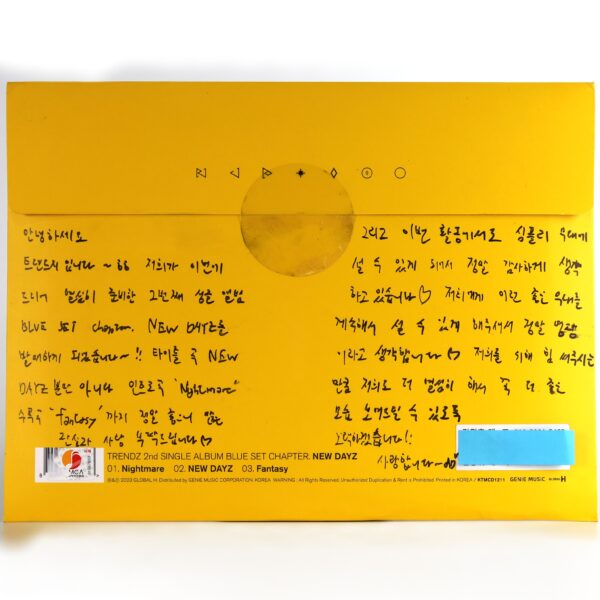 안녕하세요
트렌드지 입니다~ 저희가 이번에
드디어 열심히 준비한 2번째 싱글 앨범
BLUE SET chapter. NEW DAYZ를
발매하게 되었습니다~!! 타이틀 곡 NEW
DAYZ 뿐만 아니라 인트로곡 "Nightmare"
수록곡 "fantasy" 까지 정말 좋으니 많은
관심과 사랑 부탁드립니다♡
그리고 이번 활동에서도 심플리 무대에
설 수 있게 되어서 정말 감사하게 생각
하고 있습니다♡ 저희에게 이런 좋은 무대를
계속해서 설 수 있게 해주셔서 정말
이라고 생각합니다♡ 저희를 위해 힘 써주시는
만큼 저희도 더 열심히 해서 꼭 더 좋은
모습 보여드릴 수 있도록
노력하겠습니다!!
사랑합니다~
TRENDZ 2nd SINGLE ALBUM BLUE SET CHAPTER. NEW DAYZ
01. Nightmare 02. NEW DAYZ 03. Fantasy
℗&© 2023 GLOBAL H. Distributed by GENIE MUSIC CORPORATION, KOREA. WARNING : All Rights Reserved. Unauthorized Duplication & Rent is Prohibited. Printed in KOREA / KTMCD1211 GENIE MUSIC GLOBAL H